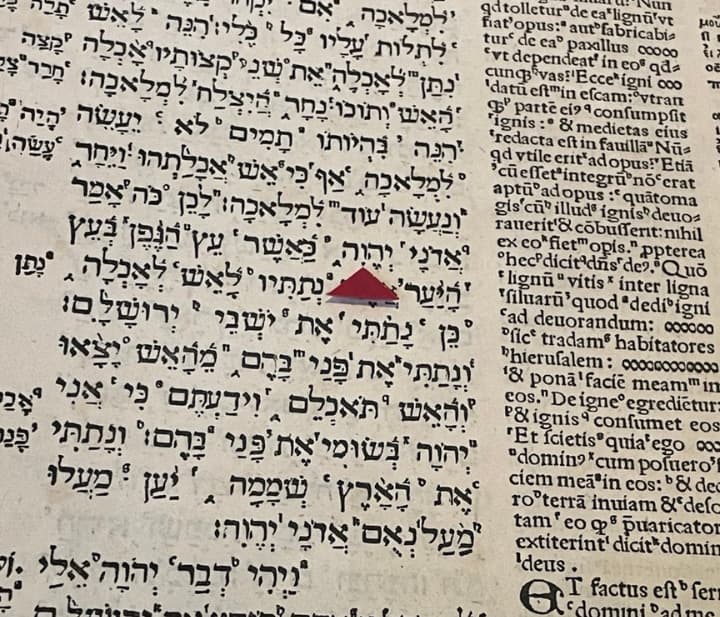 לִמְלָאכָה אִם
לִתְלוֹת עָלָיו כָּל כֶּלִי: הִנֵּה לָאֵשׁ
נִתַּן לְאָכְלָה אֵת שְׁנֵי קְצוֹתָיו אָכְלָה
הָאֵשׁ וְתוֹכוֹ נָחָר הֲיִצְלַח לִמְלָאכָה:
הִנֵּה בִּהְיוֹתוֹ תָמִים לֹא יֵעָשֶׂה
לִמְלָאכָה אַף כִּי אֵשׁ אֲכָלַתְהוּ וַיֵּחָר
וְנַעֲשָׂה עוֹד לִמְלָאכָה: לָכֵן כֹּה אָמַר
אֲדֹנָי יְהוִה כַּאֲשֶׁר עֵץ הַגֶּפֶן בְּעֵץ
הַיַּעַר נְתַתִּיו לָאֵשׁ לְאָכְלָה נָתַן
כֵּן נָתַתִּי אֶת יֹשְׁבֵי יְרוּשָׁלָם:
וְנָתַתִּי אֶת פָּנַי בָּהֶם מֵהָאֵשׁ יָצָאוּ
וְהָאֵשׁ תֹּאכְלֵם וִידַעְתֶּם כִּי אֲנִי
יְהוָה בְּשׂוּמִי אֶת פָּנַי בָּהֶם: וְנָתַתִּי
אֶת הָאָרֶץ שְׁמָמָה יַעַן מָעֲלוּ
מַעַל נְאֻם אֲדֹנָי יְהוִה:
וַיְהִי דְבַר יְהוָה אֵלַי
qd tolletur de ea lignũ vt
fiat opus: aut fabricabi-
tur de ea paxillus
vt dependeat in eo qd-
cunqȝ vas? Ecce igni
datũ est in escam: vtran
qȝ partẽ eiꝰ consumpsit
ignis: & medietas eius
redacta est in fauillã Nũ-
qd vtile erit ad opus? Etiã
cũ esset integrũ nõ erat
aptũ ad opus: quãtoma
gis cũ illud ignis deuo-
rauerit & cõbusserit: nihil
ex eo fiet opis. ꝓpterea
hec dicit dñs deꝰ. Quõ
lignũ vitis inter ligna
siluarũ quod dedi igni
ad deuorandum:
sic tradam habitatores
hierusalem:
& ponã faciẽ meam in
eos. De igne egredietur
& ignis consumet eos
Et scietis quia ego
dominꝰ cum posuero
ciem meã in eos: & ded
ro terrã inuiam & deso
tam eo qȝ p̃uaricator
extiterint dicit domin
deus.
ET factus est ser
domini ad me